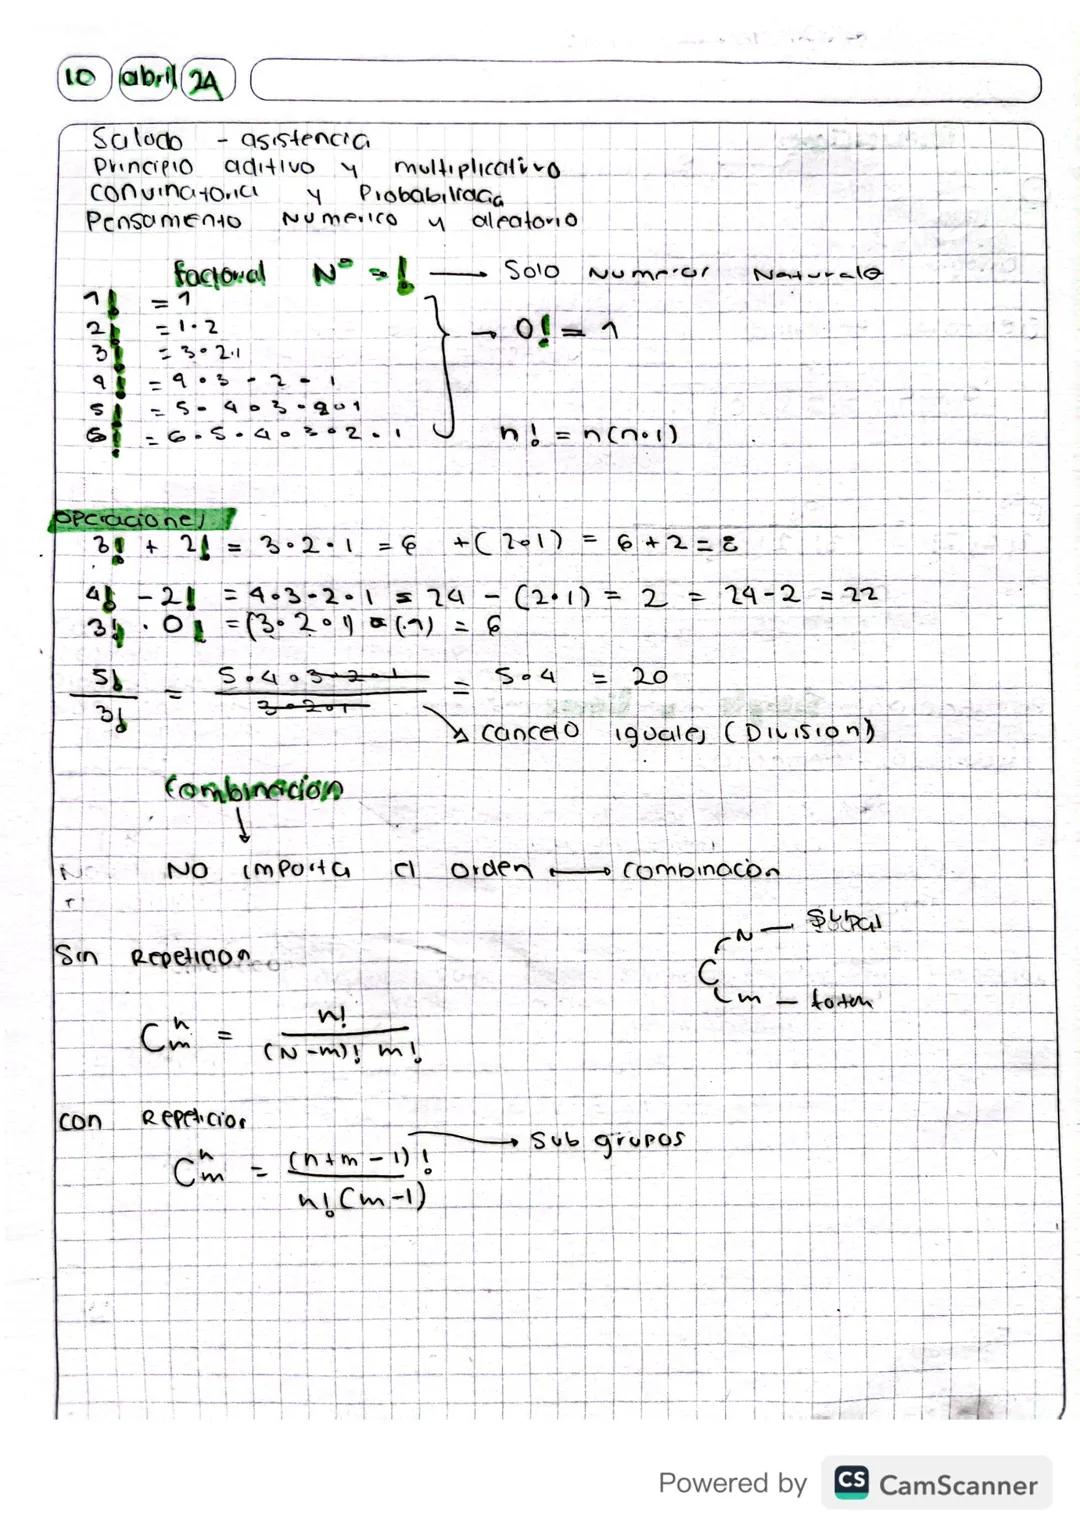 10 abril 24
Saludo - asistencia
Principio aditivo y multiplicativo
Convinatoria y Probabilidad
Pensamento Numerico y aleatorio
factorial N° = ! → Solo Numeros Naturale
1! = 1
2! = 1·2 → 0! = 1
3! = 3·2·1
4! = 4·3·2·1
5! = 5·4·3·2·1
6! = 6·5·4·3·2·1 n! = n(n·1)
Operaciones
3! + 2! = 3·2·1 = 6 + (2·1) = 6+2 = 8
4! - 2! = 4·3·2·1 = 24 - (2·1) = 2 = 24-2 = 22
3! · 0! = (3·2·1) · (1) = 6
5! / 3! = 5·4·3·2·1 / 3·2·1 = 5·4 = 20
cancelo iguales (Division)
Combinacion
NO importa el orden → combinacion
Sin Repeticion
C N —
m —
C n m = n! / (N-m)! m!
con Repeticion
C n m = (n+m-1)! / n!(m-1) → Sub grupos
Powered by CS CamScanner